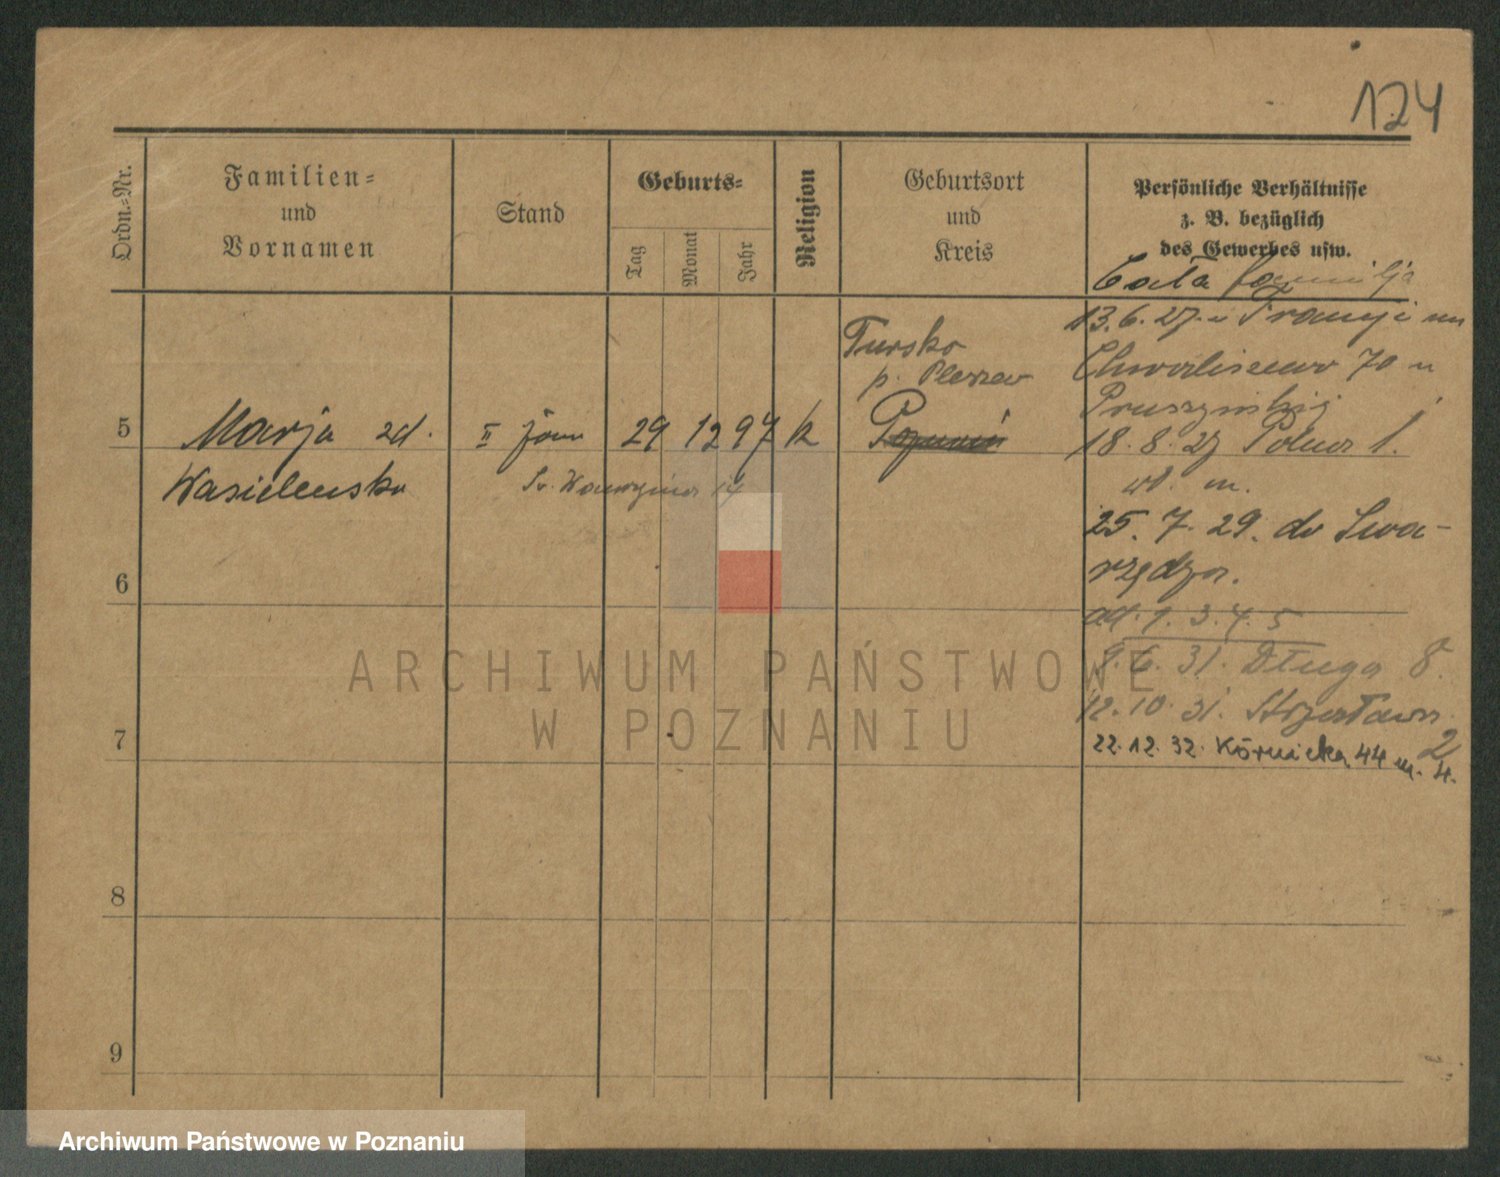 124
Ordn.-Nr.
Familien-
und
Vornamen
Stand
Geburts-
Tag
Monat
Jahr
Religion
Geburtsort
und
Kreis
Persönliche Verhältnisse
z. B. bezüglich
des Gewerbes usw.
Cała familja
13.6.27. z Francji
Tursko
p. Pleszew
Chwaliszewo 70 u
5
Marja zd.
II żona
29 12 97 k
Poznań
18. 8. 27 Polna 1.
Wasielewska
Św. Wawrzyńca 14
25. 7. 29. do Swa-
rzędza.
6
ad. 1. 3. 4. 5
9. 6. 31. Długa 8.
12. 10. 31. Strzałowa
2
7
22. 12. 32. Kórnicka 44 m. 4.
8
9
ARCHIWUM PAŃSTWOWE
W POZNANIU
Archiwum Państwowe w Poznaniu